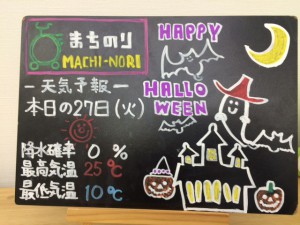 まちのり
MACHI-NORI
HAPPY
HALLO
WEEN
ー天気予報ー
本日の27日(火)
降水確率 0 %
最高気温 25℃
最低気温 10℃